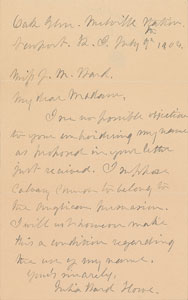 Oak Glen. Melville Station
Newport, R. I. July 9th 1906
Miss J. M. Ward.
My dear Madam.
I see no possible objection
to your embroidering my name
as proposed in your letter
just received. I suppose
Calvary to belong to
the Anglican persuasion.
I will not however make
this a condition regarding
the use of my name.
Yours sincerely,
Julia Ward Howe.